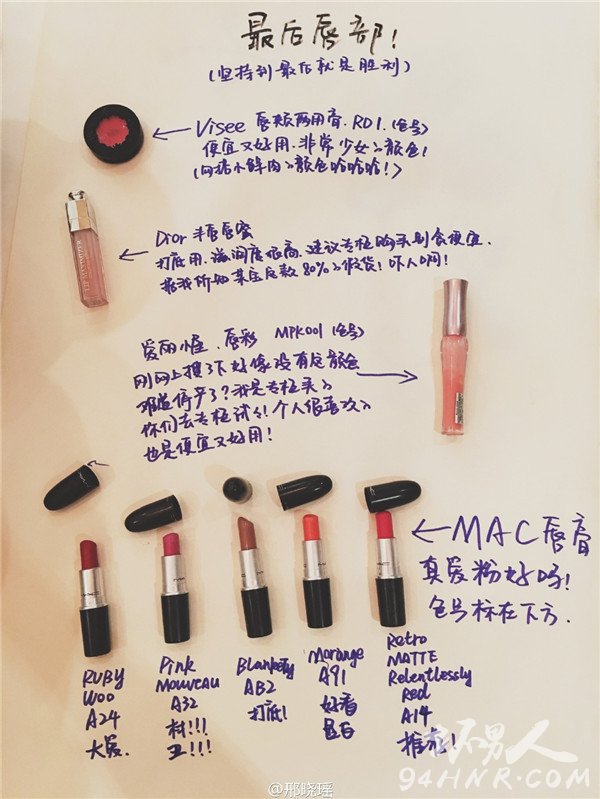 最后唇部!
(坚持到最后就是胜利)
Visee 唇颊两用膏. RD1. (色号)
便宜又好用. 非常少女的颜色!
(向指小鲜肉的颜色哈哈哈!)
Dior 丰唇唇蜜
打底用. 滋润度很高. 建议专柜购买别贪便宜.
据我所知某宝后款80%的假货! 吓人啊!
爱丽小屋. 唇彩 MPK001 (色号)
刚网上搜了下好像没有这颜色
难道停产了? 我是专柜买的
你们去专柜试试! 个人很喜欢的
也是便宜又好用!
MAC唇膏
真爱粉好吗!
色号标在下方.
RUBY
Woo
A24
大爱.
Pink
Mouveau
A32
村!!!
土!!!
Blankety
AB2
打底!
Morange
A91
好看
显白
Retro
MATTE
Relentlessly
Red
A14
推荐!
@邢晓瑶
坏男人
94HNR.COM